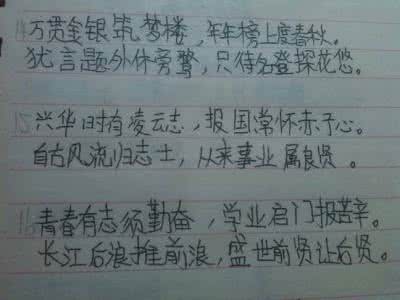 14万贯金银筑梦楼，年年榜上度春秋。
犹言题外休旁骛，只待名登探花悠。
15兴华时有凌云志，报国常怀赤子心。
自古风流归志士，从来事业属良贤。
青春有志须勤奋，学业启门报苦辛。
长江后浪推前浪，盛世前贤让后贤。